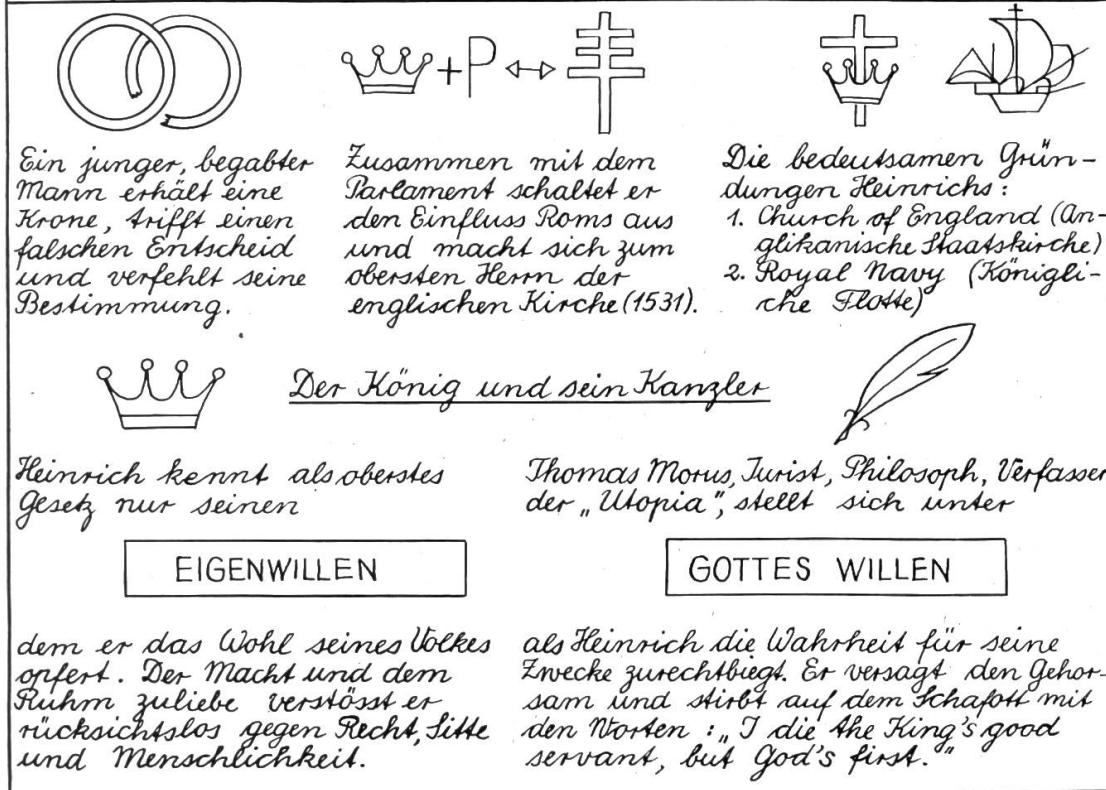 + P
Ein junger, begabter
Mann erhält eine
Krone, trifft einen
falschen Entscheid
und verfehlt seine
Bestimmung.
Zusammen mit dem
Parlament schaltet er
den Einfluss Roms aus
und macht sich zum
obersten Herrn der
englischen Kirche (1531).
Die bedeutsamen Grün-
dungen Heinrichs:
1. Church of England (An-
glikanische Staatskirche)
2. Royal Navy (Königli-
che Flotte)
Der König und sein Kanzler
Heinrich kennt als oberstes
Gesetz nur seinen
EIGENWILLEN
dem er das Wohl seines Volkes
opfert. Der Macht und dem
Ruhm zuliebe verstösst er
rücksichtslos gegen Recht, Sitte
und Menschlichkeit.
Thomas Morus, Jurist, Philosoph, Verfasser
der „Utopia", stellt sich unter
GOTTES WILLEN
als Heinrich die Wahrheit für seine
Zwecke zurechtbiegt. Er versagt den Gehor-
sam und stirbt auf dem Schafott mit
den Worten: „I die the King's good
servant, but God's first."